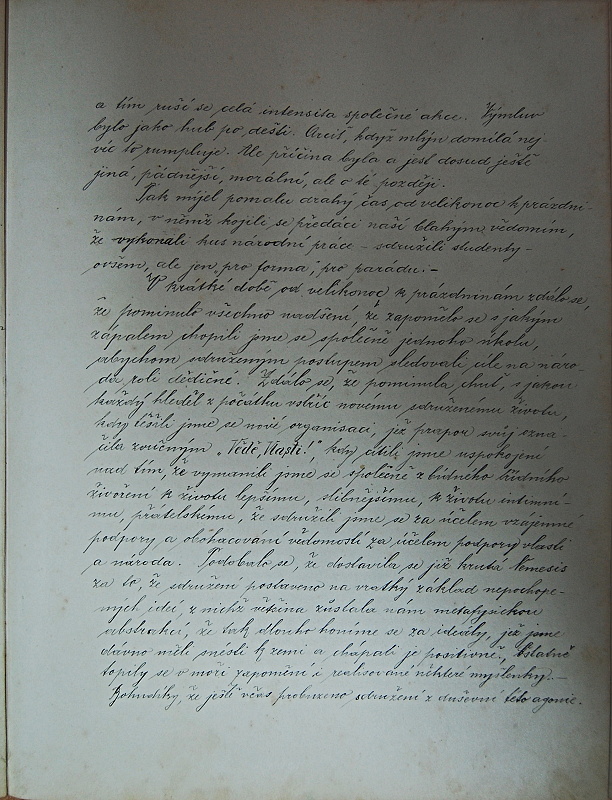 a tím ruší se celá intensita společné akce. Výmluv
bylo jako hub po dešti. Arciť, když mlýn domílá nej
víc to rumpluje. Ale příčina byla a jest dosud ještě
jiná, pádnější, morální, ale o té později.
Tak míjel pomalu drahý čas od velikonoc k prázdni-
nám, v němž kojili se předáci naší blahým vědomím,
že vykonali kus národní práce – sdružili studenty –
ovšem, ale jen „pro forma", pro parádu. –
V krátké době od velikonoc k prázdninám zdálo se,
že pominulo všechno nadšení, že zapomělo se s jakým
zápalem chopili jme se společně jednoho úkolu,
abychom sdruženým postupem sledovali cíle na náro-
da roli dědičné. Zdálo se, že pominula chuť, s jakou
každý hleděl z počátku vstříc novému sdruženému životu,
kdy těšili jme se nové organisaci, jež prapor svůj ozna-
čila zvučným „Vědě, Vlasti!", kdy cítili jme uspokojení
nad tím, že vymanili jme se společně z bídného
živoření k životu lepšímu, slibnějšímu, k životu intimní-
mu, přátelskému, že sdružili jme se za účelem vzájemné
podpory a obohacování vědomostí za účelem podpory vlasti
a národa. Podobalo se, že dostavila se již krutá Nemesis
za to, že sdružení postaveno na vratký základ nepochope-
ných ideí, z nichž většina zůstala nám metafysickou
abstrakcí, že tak dlouho honíme se za ideály, jež jsme
dávno měli snésti k zemi a chápati je positivně. Ostatně
topily se v moři zapomění i realisované některé myšlenky. –
Bohudíky, že ještě včas probuzeno sdružení z duševní této agonie.